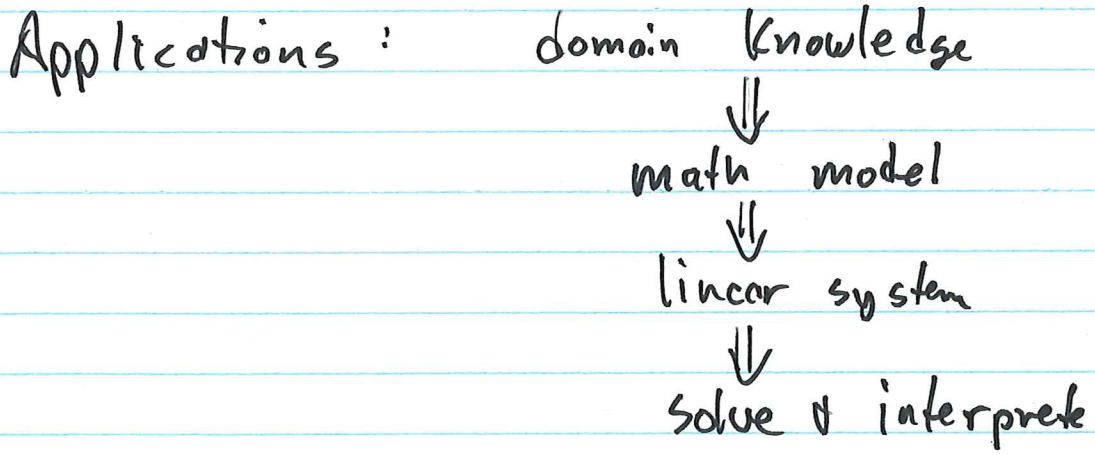 Applications : domain Knowledge
⇓
math model
⇓
linear system
⇓
solve & interprete